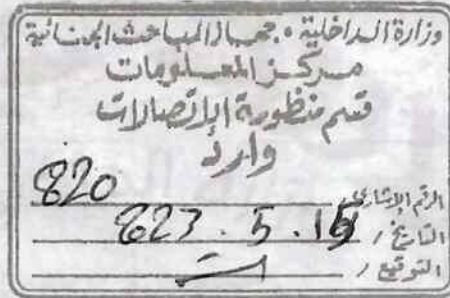 وزارة الداخلية • جهاز المباحث الجنائية
مركز المعلومات
قسم منظومة الإتصالات
وارد
الرقم الإشاري 820
التاريخ / 15 . 5 . 823
التوقيع /